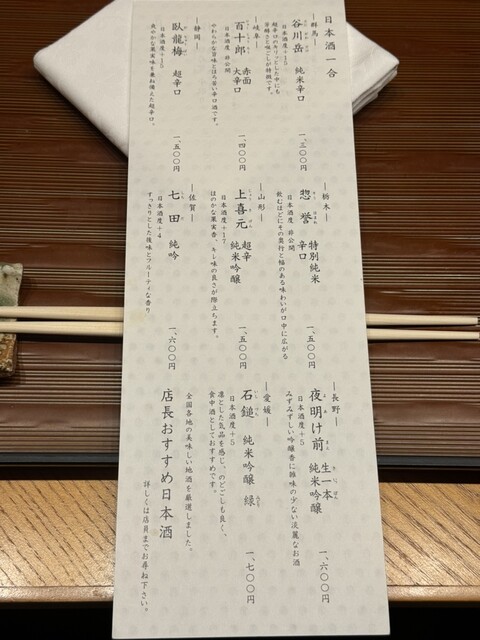 日本酒一合
―群馬―
谷川岳 純米辛口
日本酒度+15
超辛口のキリッとした中にも
芳醇さと喉ごしが特徴です。
一、三〇〇円
―岐阜―
百十郎 赤面 大辛口
日本酒度 非公開
やわらかな旨味とほろ苦い辛口酒です。
一、四〇〇円
―静岡―
臥龍梅 超辛口
日本酒度+15
爽やかな果実味を兼ね備えた超辛口。
一、五〇〇円
―栃木―
惣誉 特別純米 辛口
日本酒度 非公開
飲むほどにその奥行と幅のある味わいが口中に広がる
一、五〇〇円
―山形―
上喜元 超辛 純米吟醸
日本酒度+17
ほのかな果実香、キレ味の良さが際立ちます。
一、五〇〇円
―佐賀―
七田 純吟
日本酒度+4
すっきりとした後味とフルーティな香り
一、六〇〇円
―長野―
夜明け前 生一本 純米吟醸
日本酒度+5
みずみずしい吟醸香に雑味の少ない淡麗なお酒
一、六〇〇円
―愛媛―
石鎚 純米吟醸 緑
日本酒度+5
凛とした気品を感じ、のどごしも良く、
食中酒としておすすめです。
一、七〇〇円
全国各地の美味しい地酒を厳選しました。
店長おすすめ日本酒
詳しくは店員までお尋ね下さい。